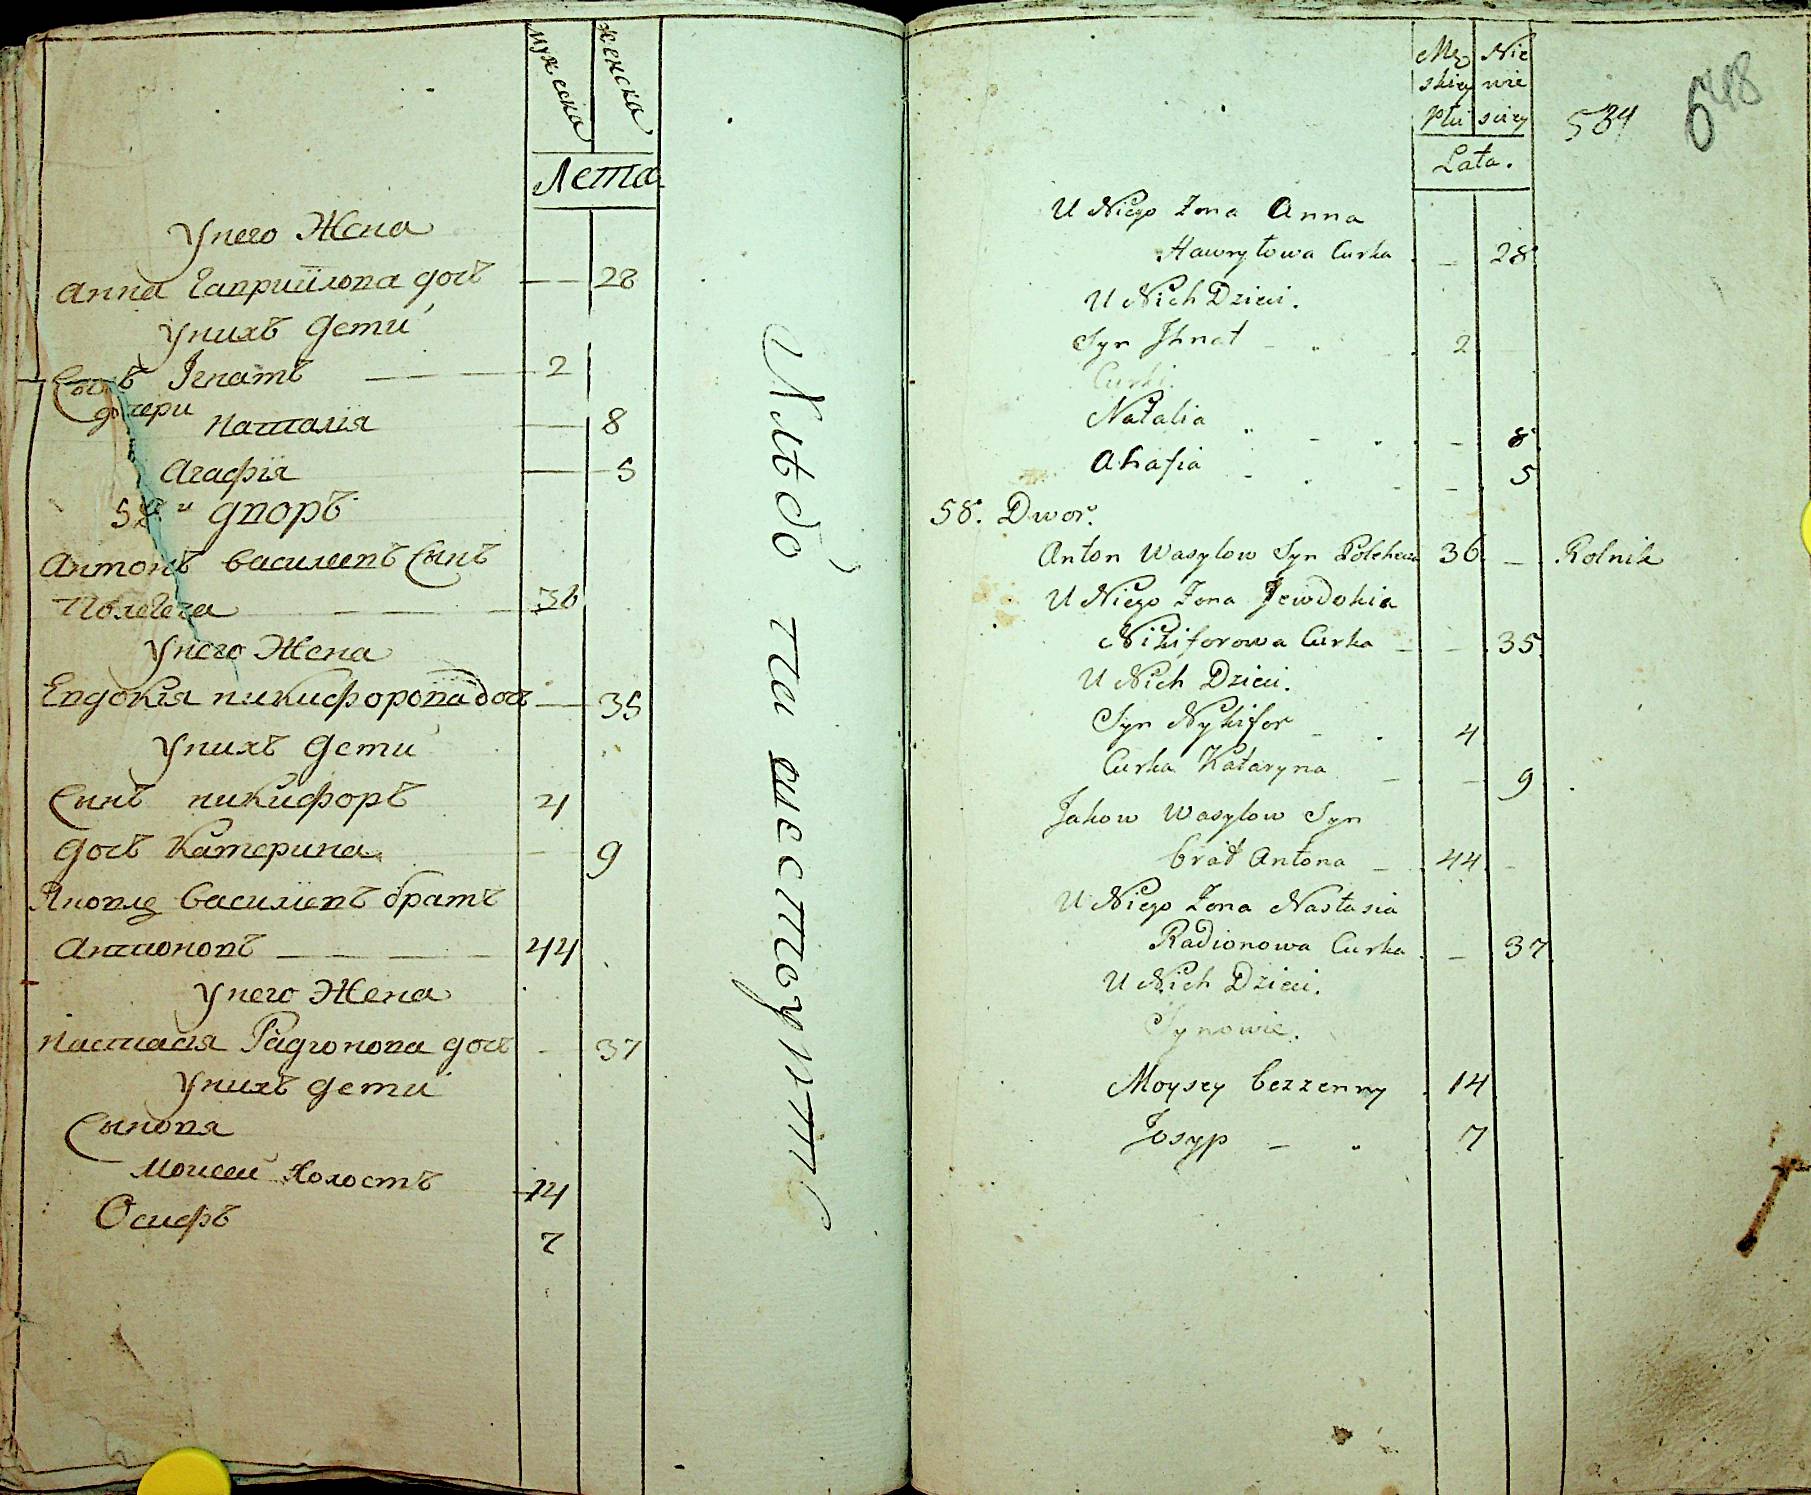 мужеска женска
Лета
Унего Жена
Анна Гавриилова дочь — 28
Унихъ дети
Сынъ Игнатъ — 2
дочери
Наталія — 8
Агафія — 5
58й дворъ
Антонъ Василиевъ Сынъ
36
Унего Жена
Евдокія никифорова дочь — 35
Унихъ дети
Сынъ никифоръ 4
дочь Катерина — 9
Яковлъ Василиевъ братъ
Антоновъ — 44
Унего Жена
Настасия Радионова дочь — 37
Унихъ дети
Сыновя
Моисей Холостъ 14
Осифъ 7
Męskiey Płci Niewiesciey
Lata.
534
648
U Niego Zona Anna
Hawryłowa Curka — 28
U Nich Dzieci.
Syn Ihnat 2
Curki.
Natalia — 8
Ahafia — 5
58. Dwor.
Anton Wasylow Syn 36 — Rolnik
U Niego Zona Jewdokia
Nikiforowa Curka — 35
U Nich Dzieci.
Syn Nykifor 4
Curka Kataryna — 9
Jakow Wasylow Syn
brat Antona — 44
U Niego Zona Nastasia
Radionowa Curka — 37
U Nich Dzieci.
Synowie.
Moysey bezzenny 14
Josyp — 7